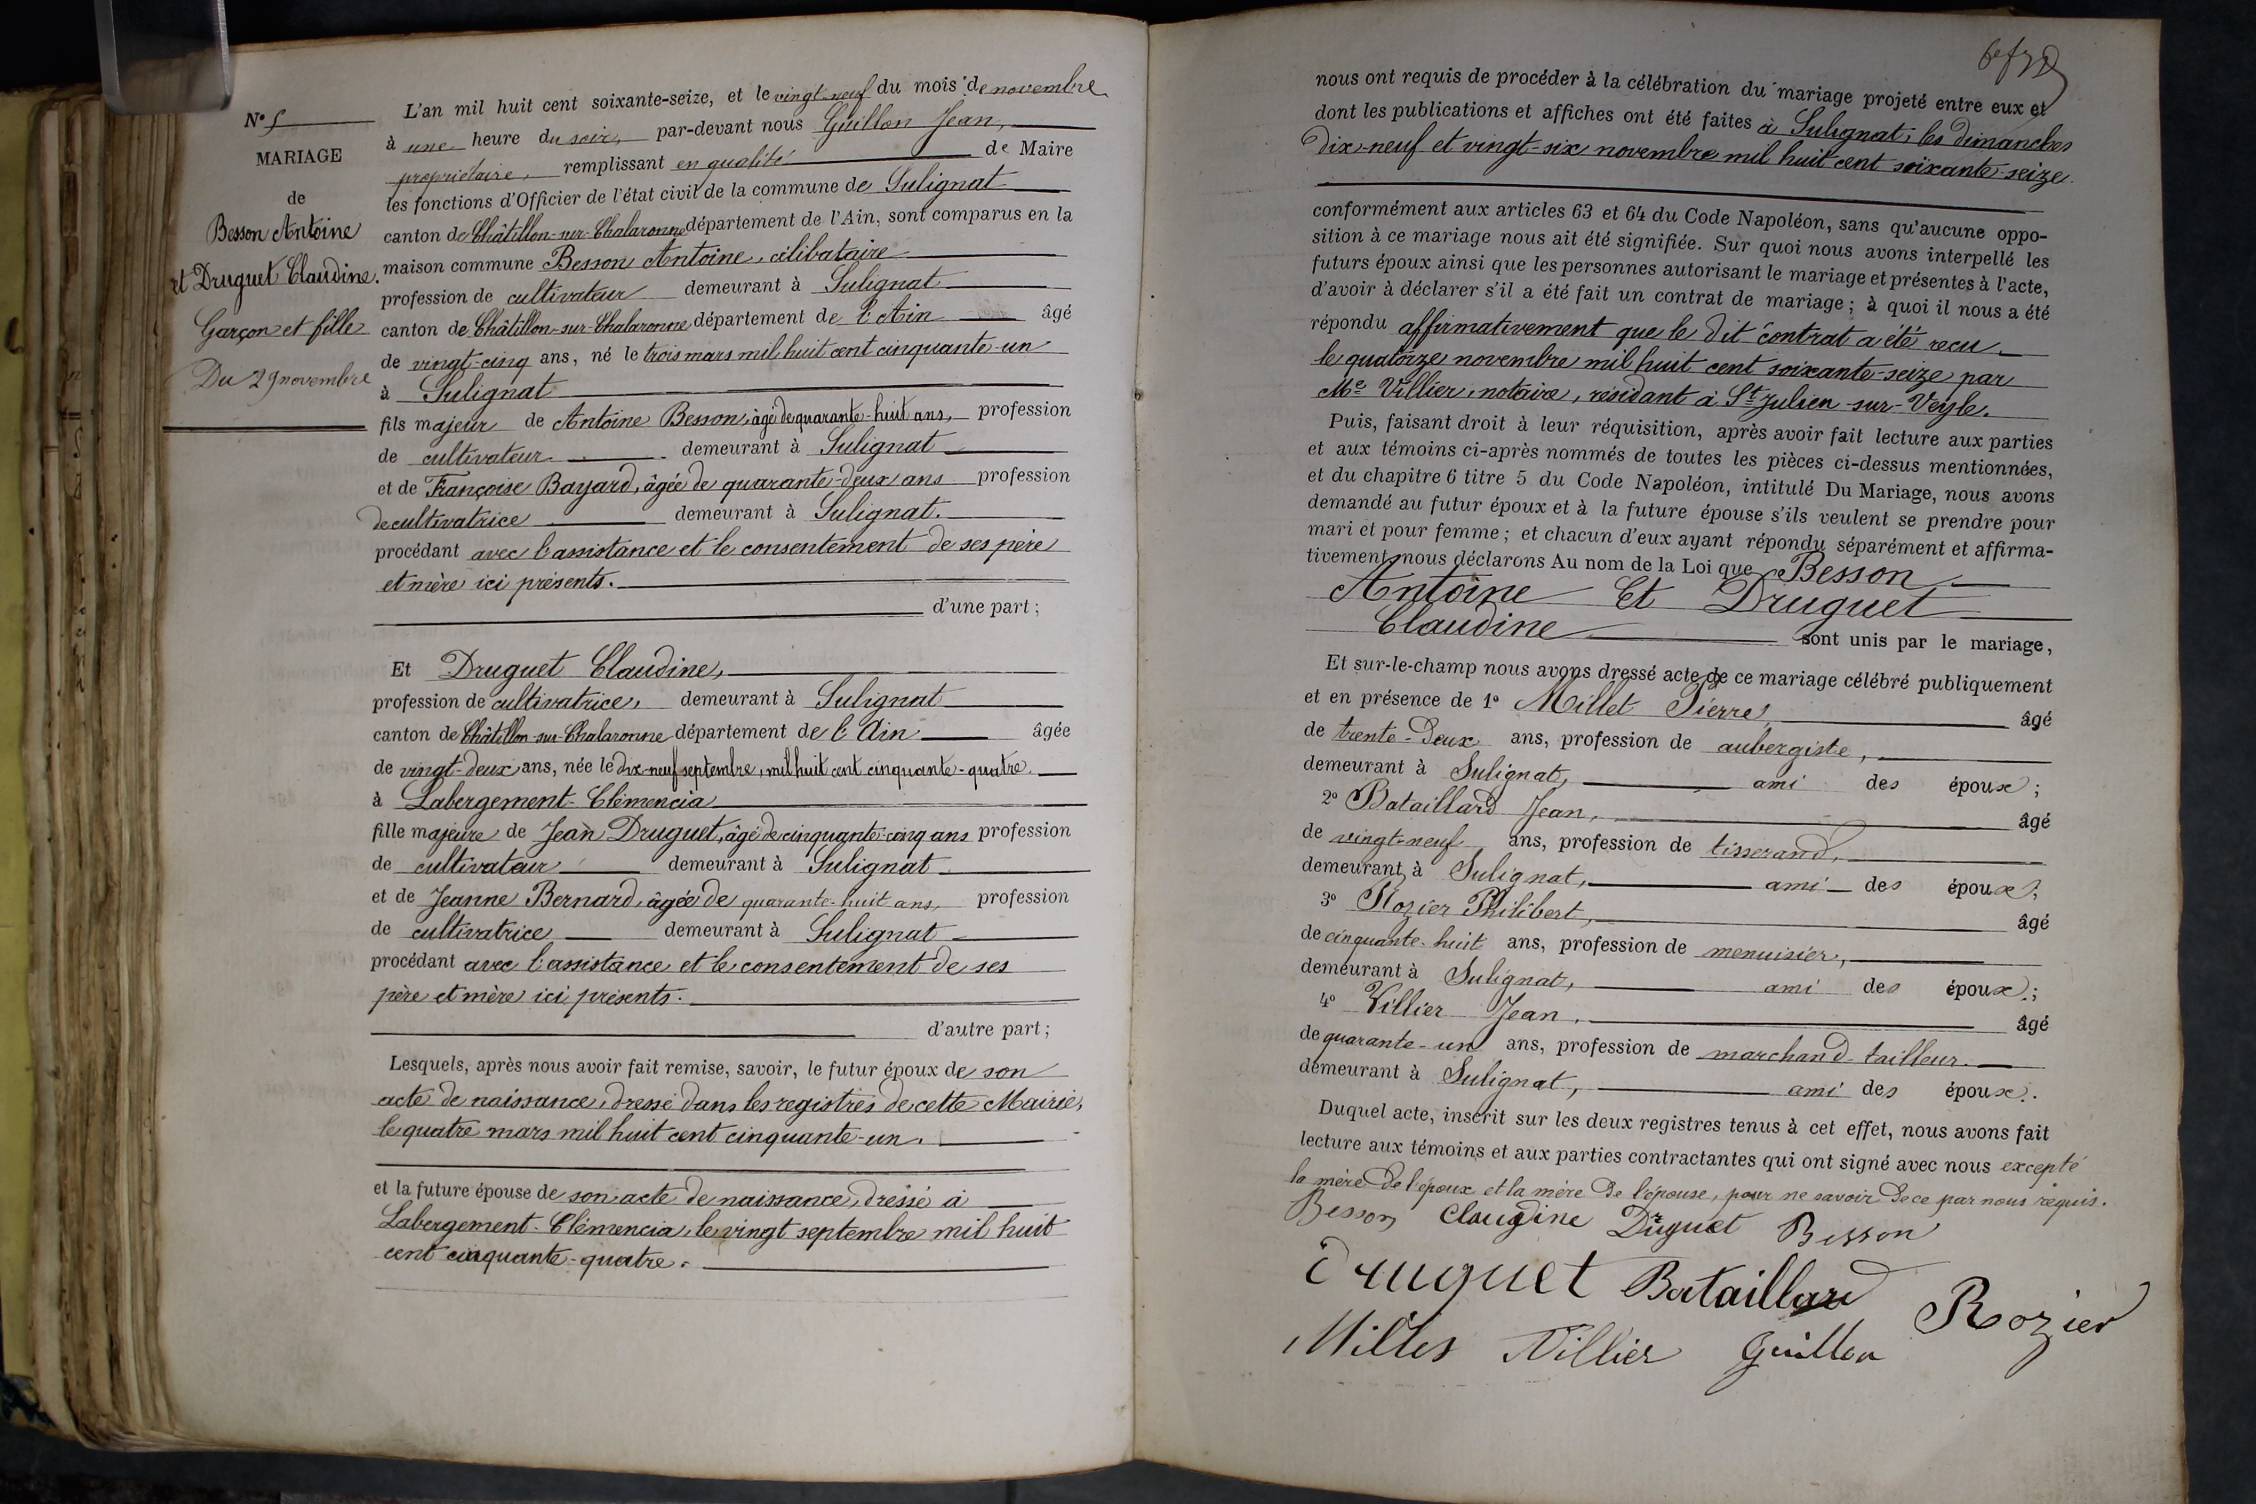 N° 5
MARIAGE
de
Besson Antoine
et Druguet Claudine.
Garçon et fille
Du 29 novembre
L'an mil huit cent soixante-seize, et le vingt-neuf du mois de novembre
à une heure du soir, par-devant nous Guillon Jean,
propriétaire, remplissant en qualité de Maire
les fonctions d'Officier de l'état civil de la commune de Sulignat
canton de Châtillon-sur-Chalaronne département de l'Ain, sont comparus en la
maison commune Besson Antoine, célibataire
profession de cultivateur demeurant à Sulignat
canton de Châtillon-sur-Chalaronne, département de l'Ain âgé
de vingt-cinq ans, né le trois mars mil huit cent cinquante-un
à Sulignat
fils majeur de Antoine Besson, âgé de quarante-huit ans, profession
de cultivateur demeurant à Sulignat
et de Françoise Bayard, âgée de quarante-deux ans profession
de cultivatrice demeurant à Sulignat.
procédant avec l'assistance et le consentement de ses père
et mère ici présents.
d'une part;
Et Druguet Claudine,
profession de cultivatrice, demeurant à Sulignat
canton de Châtillon-sur-Chalaronne département de l'Ain âgée
de vingt-deux ans, née le dix-neuf septembre, mil huit cent cinquante-quatre.
à Labergement-Clémencia
fille majeure de Jean Druguet, âgé de cinquante-cinq ans profession
de cultivateur demeurant à Sulignat
et de Jeanne Bernard, âgée de quarante-huit ans, profession
de cultivatrice demeurant à Sulignat
procédant avec l'assistance et le consentement de ses
père et mère ici présents.
d'autre part;
Lesquels, après nous avoir fait remise, savoir, le futur époux de son
acte de naissance, dressé dans les registres de cette Mairie,
le quatre mars mil huit cent cinquante-un.
et la future épouse de son acte de naissance, dressé à
Labergement-Clémencia, le vingt septembre mil huit
cent cinquante-quatre.
nous ont requis de procéder à la célébration du mariage projeté entre eux et
dont les publications et affiches ont été faites à Sulignat, les dimanches
dix-neuf et vingt-six novembre mil huit cent soixante-seize.
conformément aux articles 63 et 64 du Code Napoléon, sans qu'aucune oppo-
sition à ce mariage nous ait été signifiée. Sur quoi nous avons interpellé les
futurs époux ainsi que les personnes autorisant le mariage et présentes à l'acte,
d'avoir à déclarer s'il a été fait un contrat de mariage; à quoi il nous a été
répondu affirmativement que le dit contrat a été reçu
le quatorze novembre mil huit cent soixante-seize par
Me Villier, notaire, résidant à St Julien-sur-Veyle.
Puis, faisant droit à leur réquisition, après avoir fait lecture aux parties
et aux témoins ci-après nommés de toutes les pièces ci-dessus mentionnées,
et du chapitre 6 titre 5 du Code Napoléon, intitulé Du Mariage, nous avons
demandé au futur époux et à la future épouse s'ils veulent se prendre pour
mari et pour femme; et chacun d'eux ayant répondu séparément et affirma-
tivement, nous déclarons Au nom de la Loi que Besson
Antoine Et Druguet
Claudine sont unis par le mariage,
Et sur-le-champ nous avons dressé acte de ce mariage célébré publiquement
et en présence de 1° Millet Pierre, âgé
de trente-deux ans, profession de aubergiste,
demeurant à Sulignat, ami des époux;
2° Bataillard Jean, âgé
de vingt-neuf ans, profession de tisserand,
demeurant à Sulignat, ami des époux;
3° Rozier Philibert, âgé
de cinquante-huit ans, profession de menuisier,
demeurant à Sulignat, ami des époux;
4° Villier Jean, âgé
de quarante-un ans, profession de marchand-tailleur.
demeurant à Sulignat, ami des époux.
Duquel acte, inscrit sur les deux registres tenus à cet effet, nous avons fait
lecture aux témoins et aux parties contractantes qui ont signé avec nous excepté
la mère de l'époux et la mère de l'épouse, pour ne savoir de ce par nous requis.
Besson Claudine Druguet Besson
Druguet Bataillard Rozier
Millet Villier Guillon